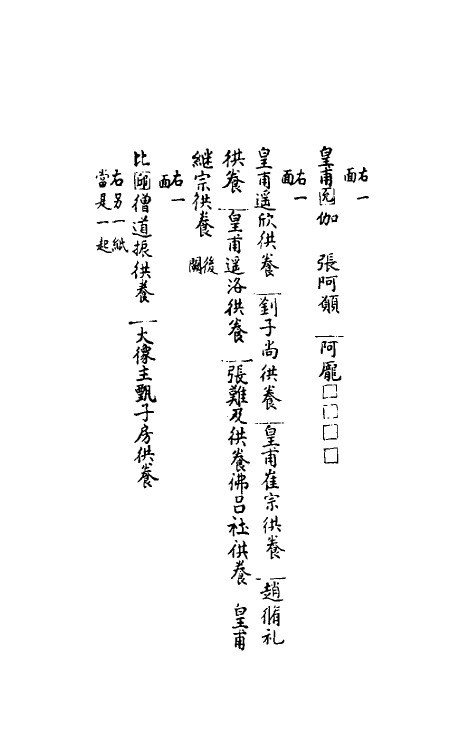 右一面
皇甫園伽　張阿願　阿龐□□□□
右一面
皇甫遥欣供養　劉子尚供養　皇甫崔宗供養　趙脩礼
供養　皇甫遥洛供養　張難及供養佛吕社供養　皇甫
継宗供養　後闕
右一面
比圖僧道振供養　大像主甄子房供養
右另一紙
當是一起